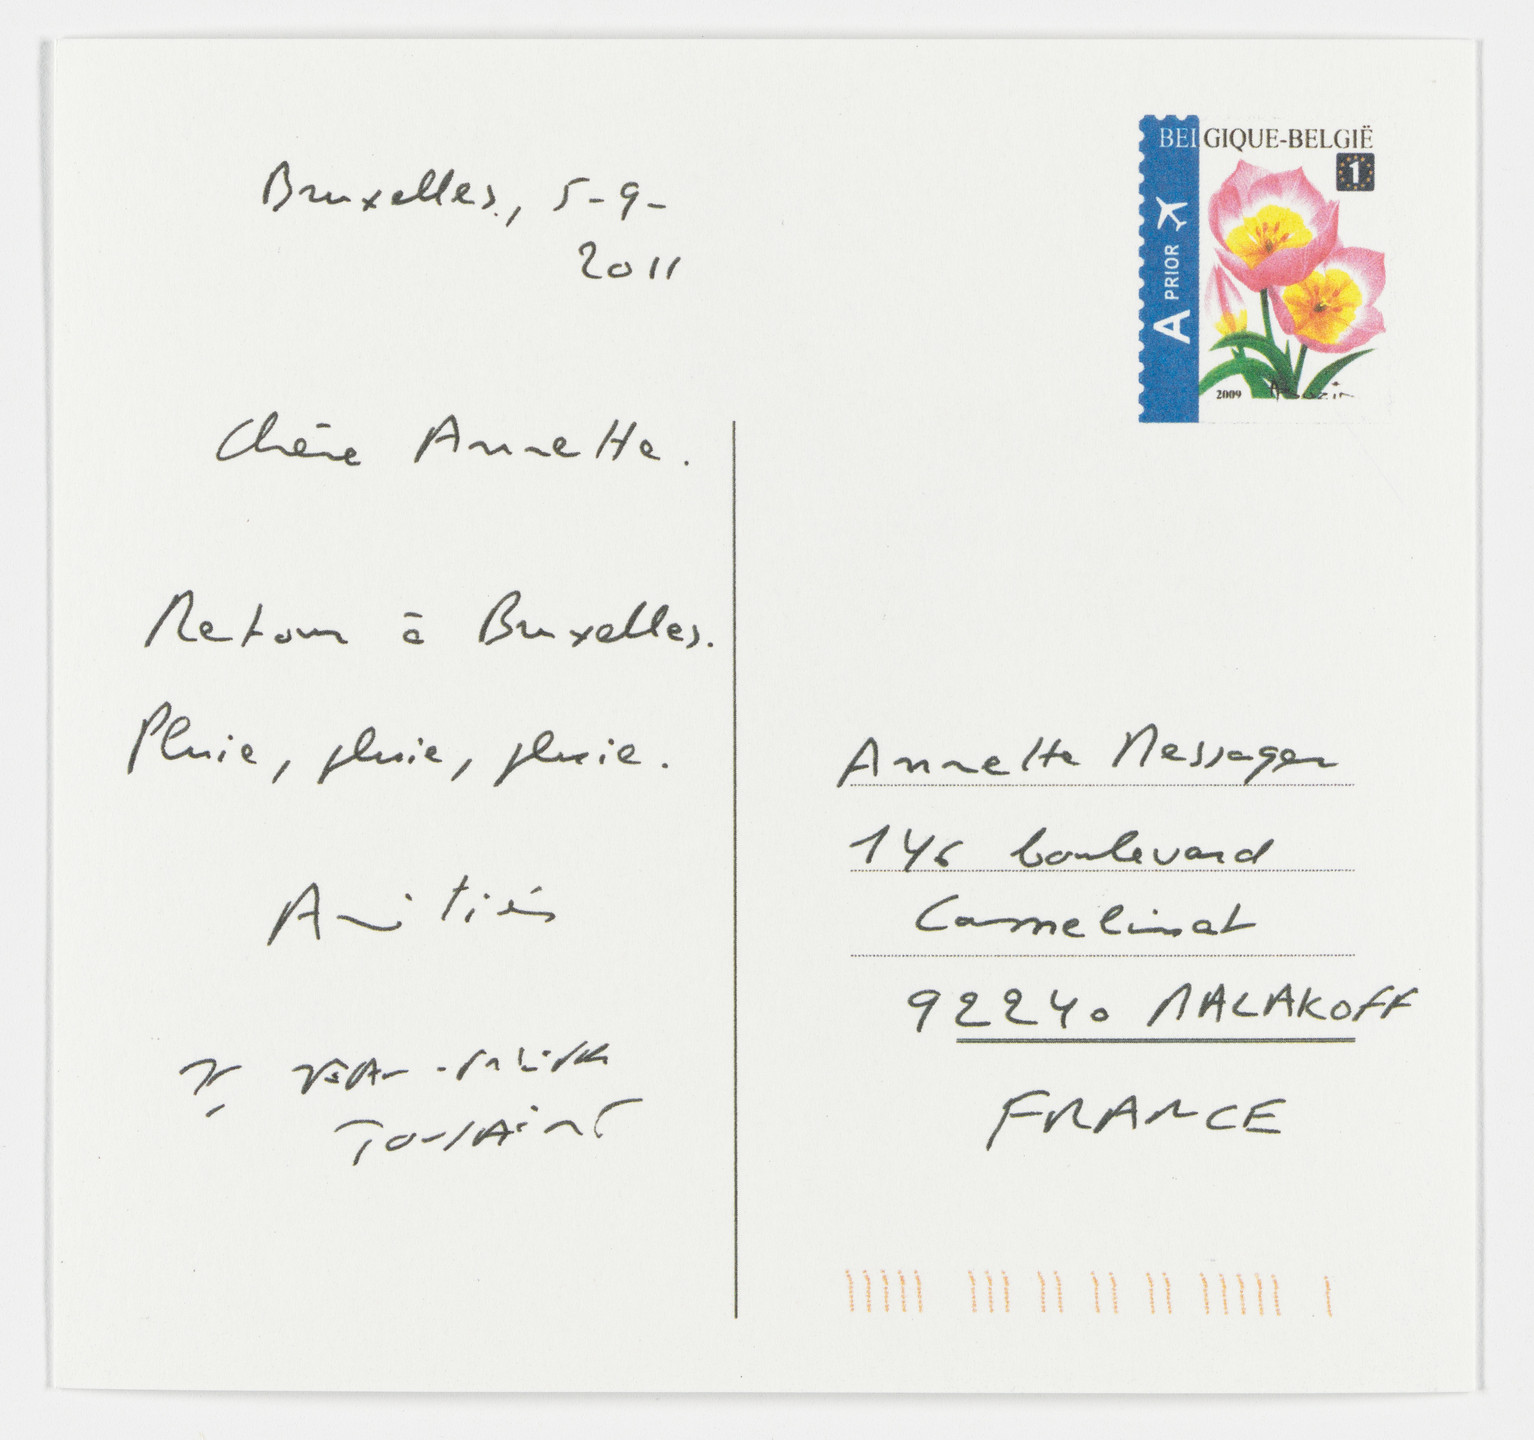 Bruxelles, 5-9-
2011
Chère Annette.
Retour à Bruxelles.
Pluie, pluie, pluie.
Amitiés
Toussaint
BELGIQUE-BELGIË
1
A PRIOR
2009
Annette Messager
146 boulevard
Camelinat
92240 MALAKOFF
FRANCE